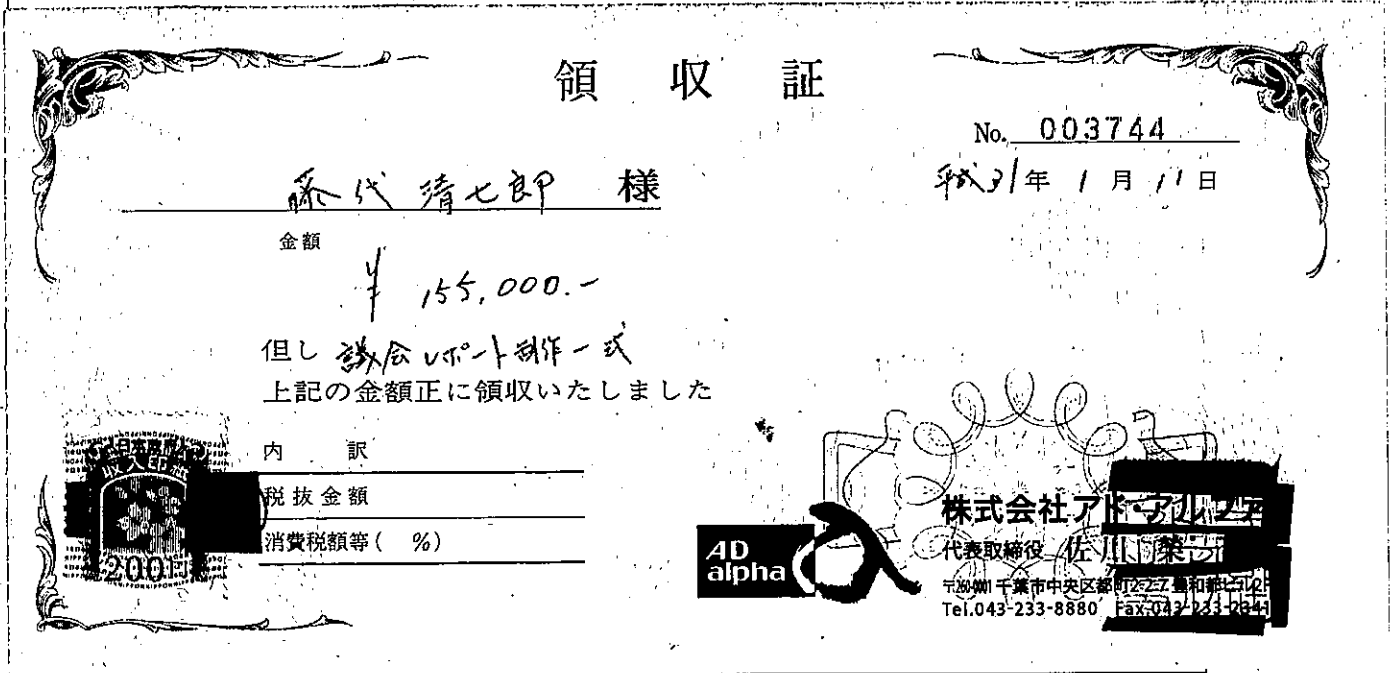 領収証
No. 003744
平成31年1月11日
藤代清七郎 様
金額
¥155,000.-
但し 議会レポート制作一式
上記の金額正に領収いたしました
内訳
税抜金額
消費税額等( %)
日本政府
収入印紙
200円
AD
alpha
株式会社アド・アルファ
代表取締役 佐川 榮
千葉市中央区都町2-2-7 豊和都ビル2F
Tel.043-233-8880 Fax.043-233-2341